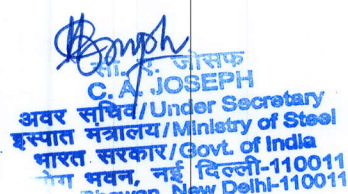 सी. ए. जोसफ
C. A. JOSEPH
अवर सचिव/Under Secretary
इस्पात मंत्रालय/Ministry of Steel
भारत सरकार/Govt. of India
भवन, नई दिल्ली-110011
New Delhi-110011